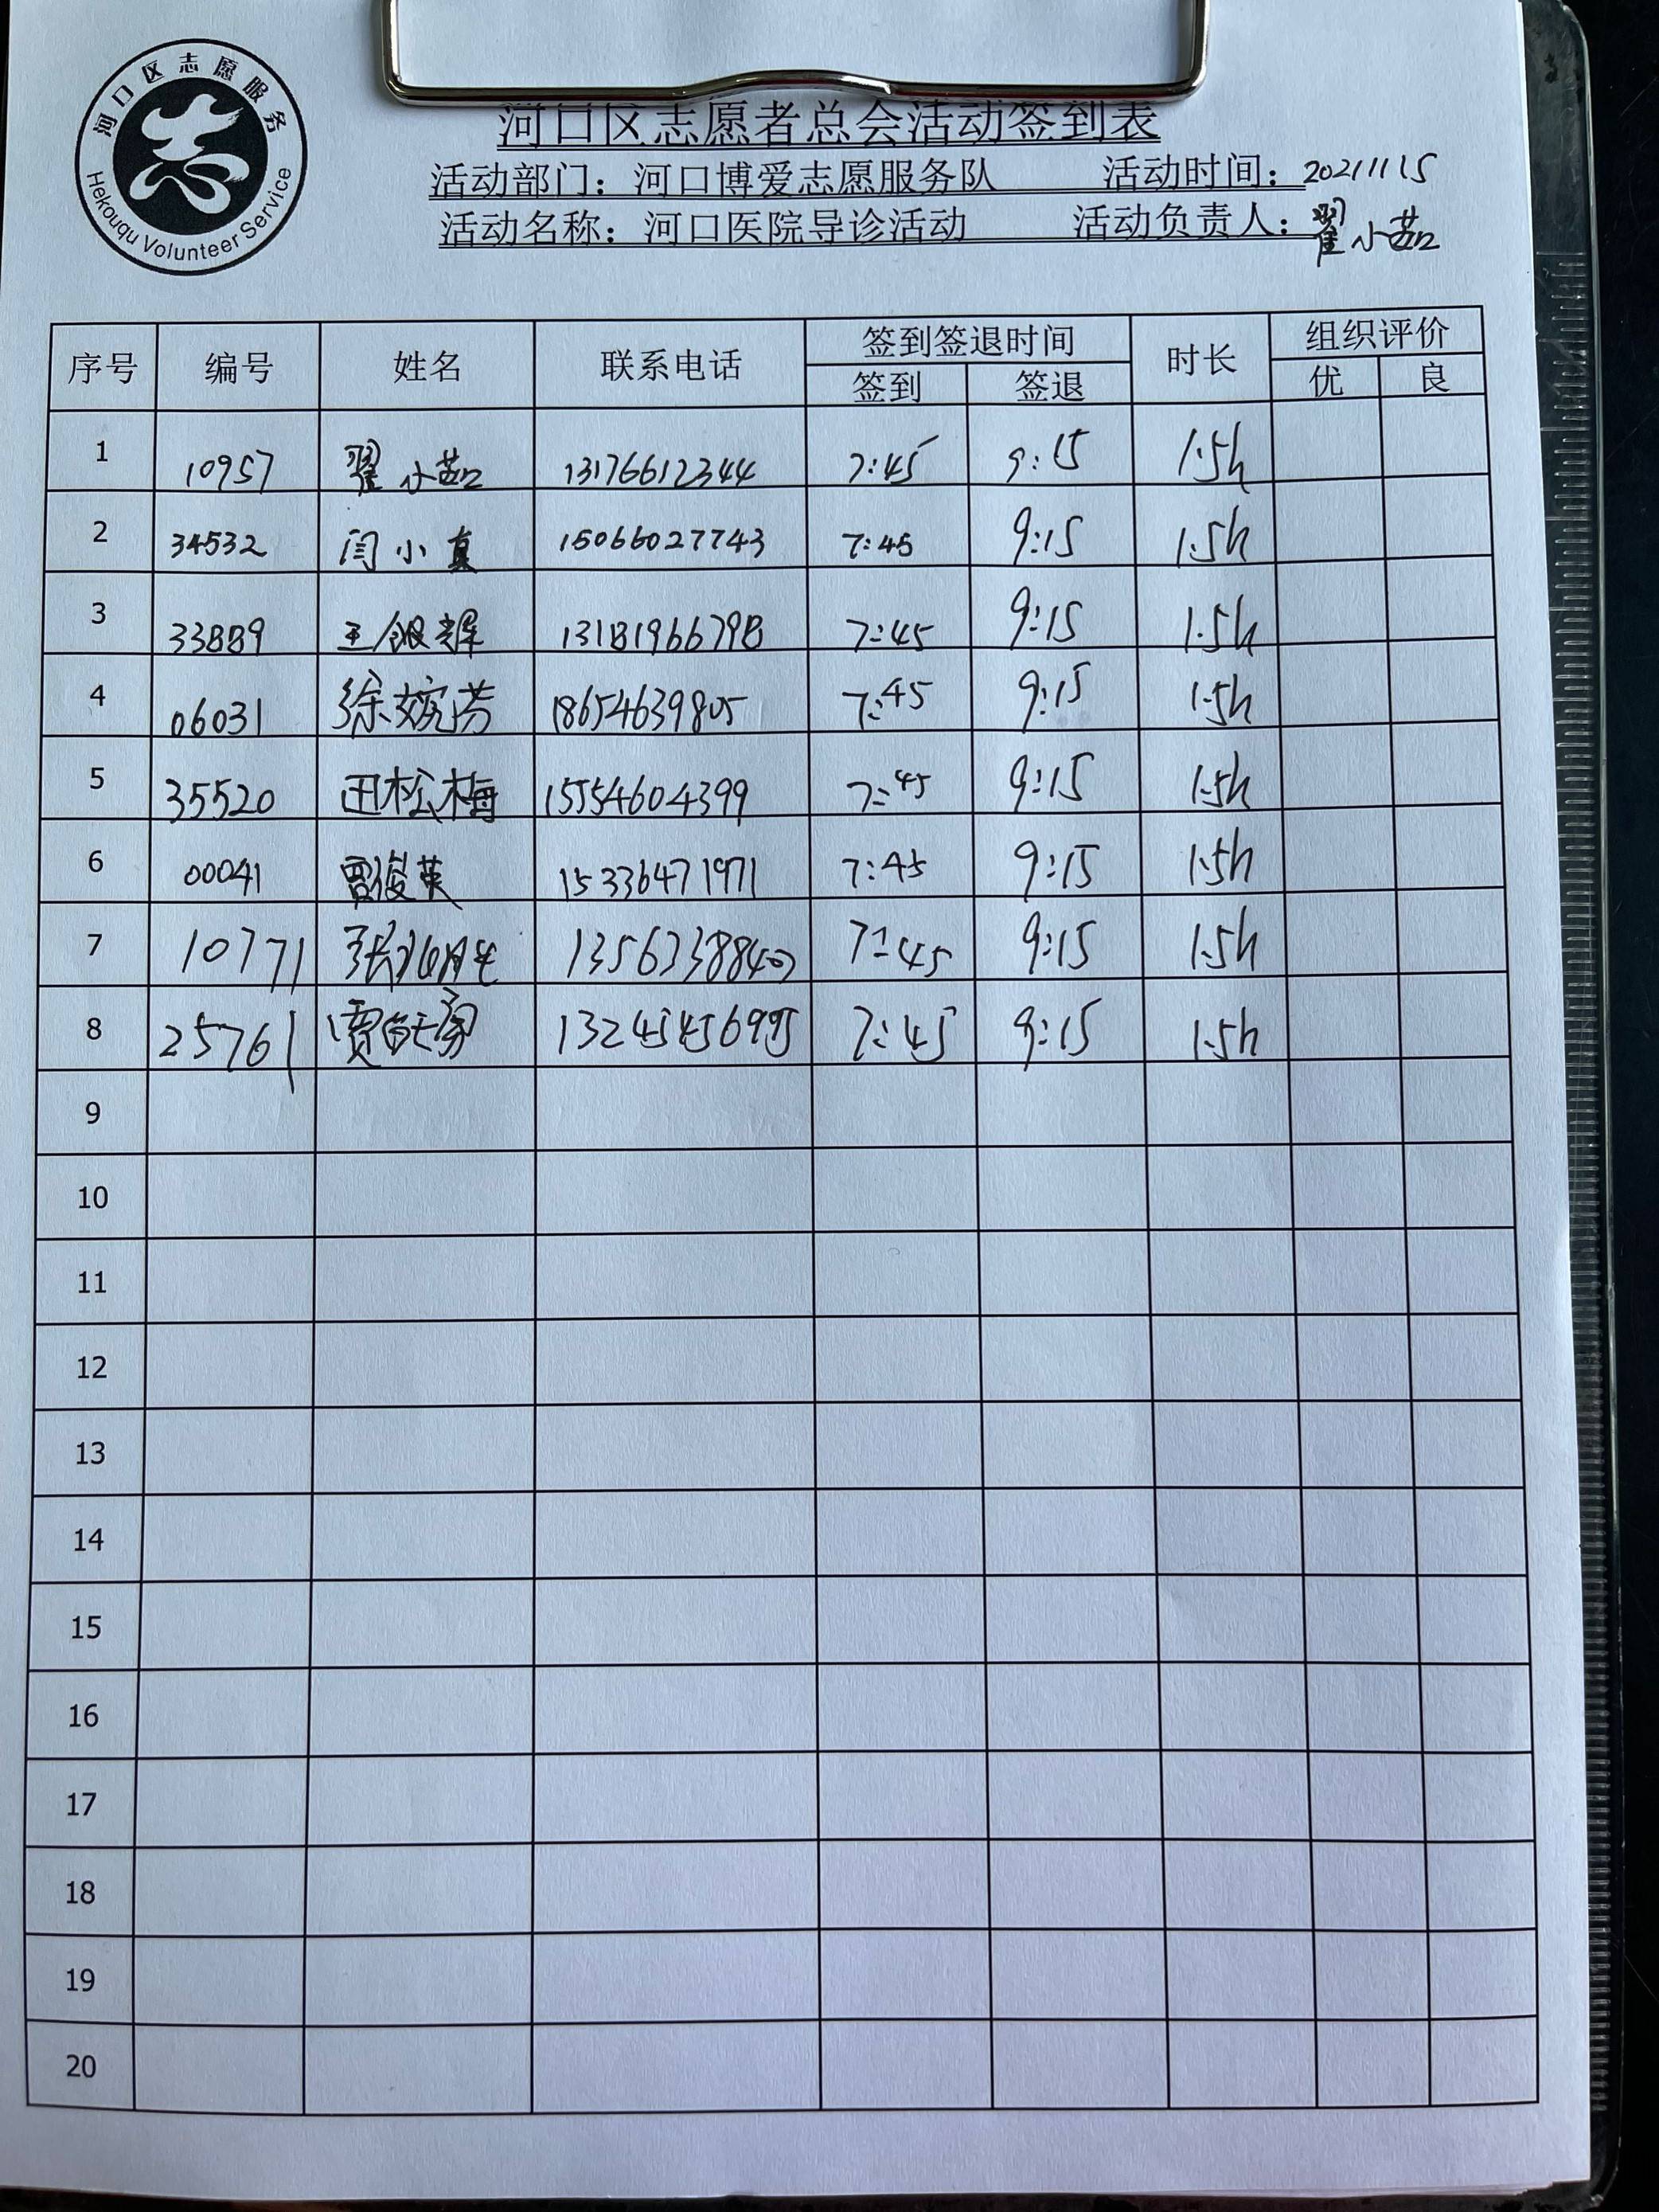 河口区志愿服务
Hekouqu Volunteer Service
河口区志愿者总会活动签到表
活动部门：河口博爱志愿服务队 活动时间：20211115
活动名称：河口医院导诊活动 活动负责人：翟小茹
序号 编号 姓名 联系电话 签到签退时间 时长 组织评价
签到 签退 优 良
1 10957 翟小茹 13176612344 7:45 9:15 1.5h
2 34532 闫小真 15066027743 7:45 9:15 1.5h
3 33889 王银辉 13181966798 7:45 9:15 1.5h
4 06031 徐婉芳 18654639805 7:45 9:15 1.5h
5 35520 田松梅 15554604399 7:45 9:15 1.5h
6 00041 雷俊英 15336471971 7:45 9:15 1.5h
7 10771 7:45 9:15 1.5h
8 25761 7:45 9:15 1.5h
9
10
11
12
13
14
15
16
17
18
19
20